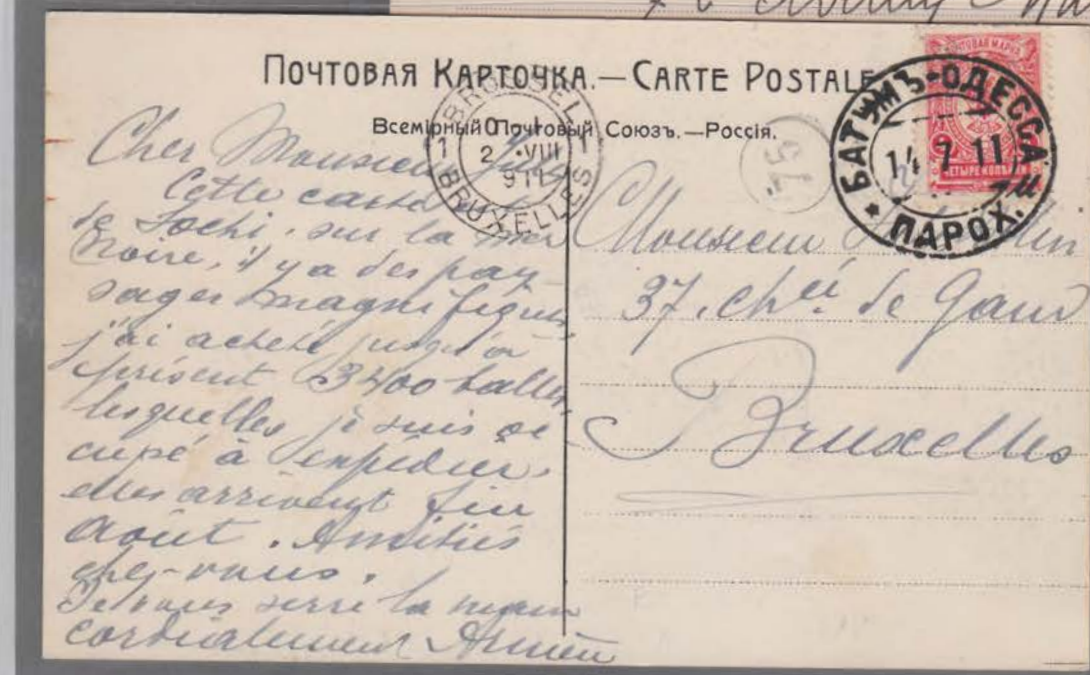 ПОЧТОВАЯ КАРТОЧКА. — CARTE POSTALE
Всемірный Почтовый Союзъ. — Россія.
BRUXELLES
1 1
2 VIII
911
BRUXELLES
БАТУМЪ-ОДЕССА
14 7 11
ПАРОХ.
ПОЧТОВАЯ МАРКА
ЧЕТЫРЕ КОП
75
Cher Monsieur
Cette carte
de Sochi, sur la mer
Noire, il y a des pay-
sages magnifiques,
j'ai acheté jusqu'à
présent 3400 balles,
lesquelles je suis oc
cupé à expédier,
elles arrivent fin
Août. Amitiés
chez-vous.
Je vous serre la main
cordialement
Monsieur
37. chée de Gand
Bruxelles